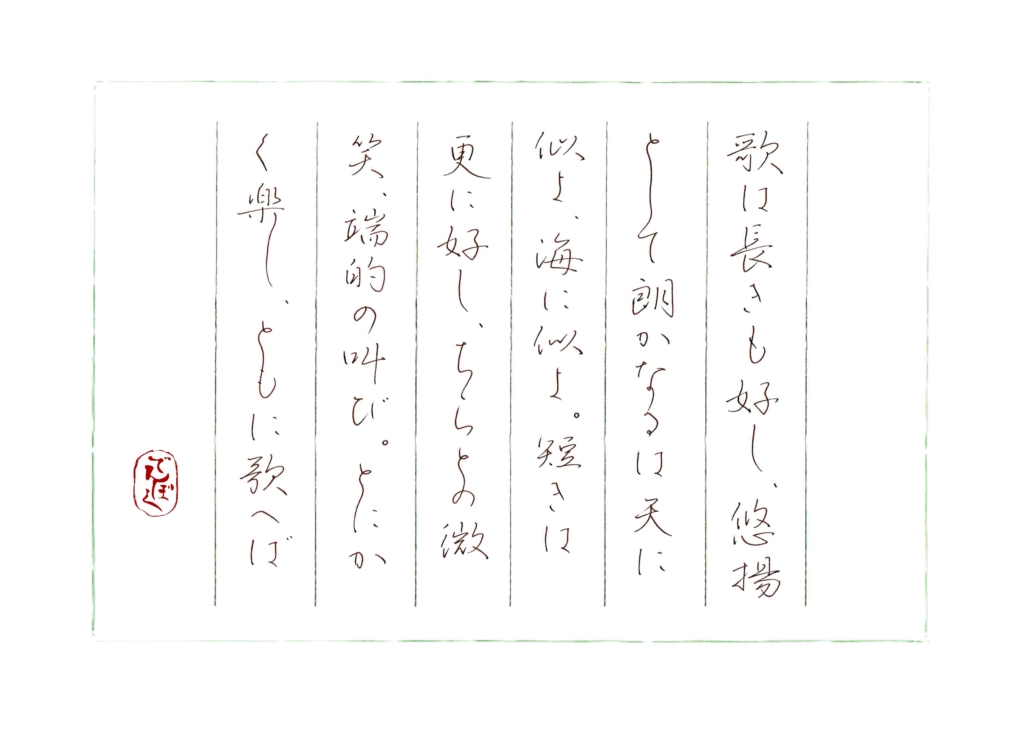 歌は長きも好し、悠揚
として朗かなるは天に
似よ、海に似よ。短きは
更に好し、ちらとの微
笑、端的の叫び。とにか
く楽し、ともに歌へば
でんぼく